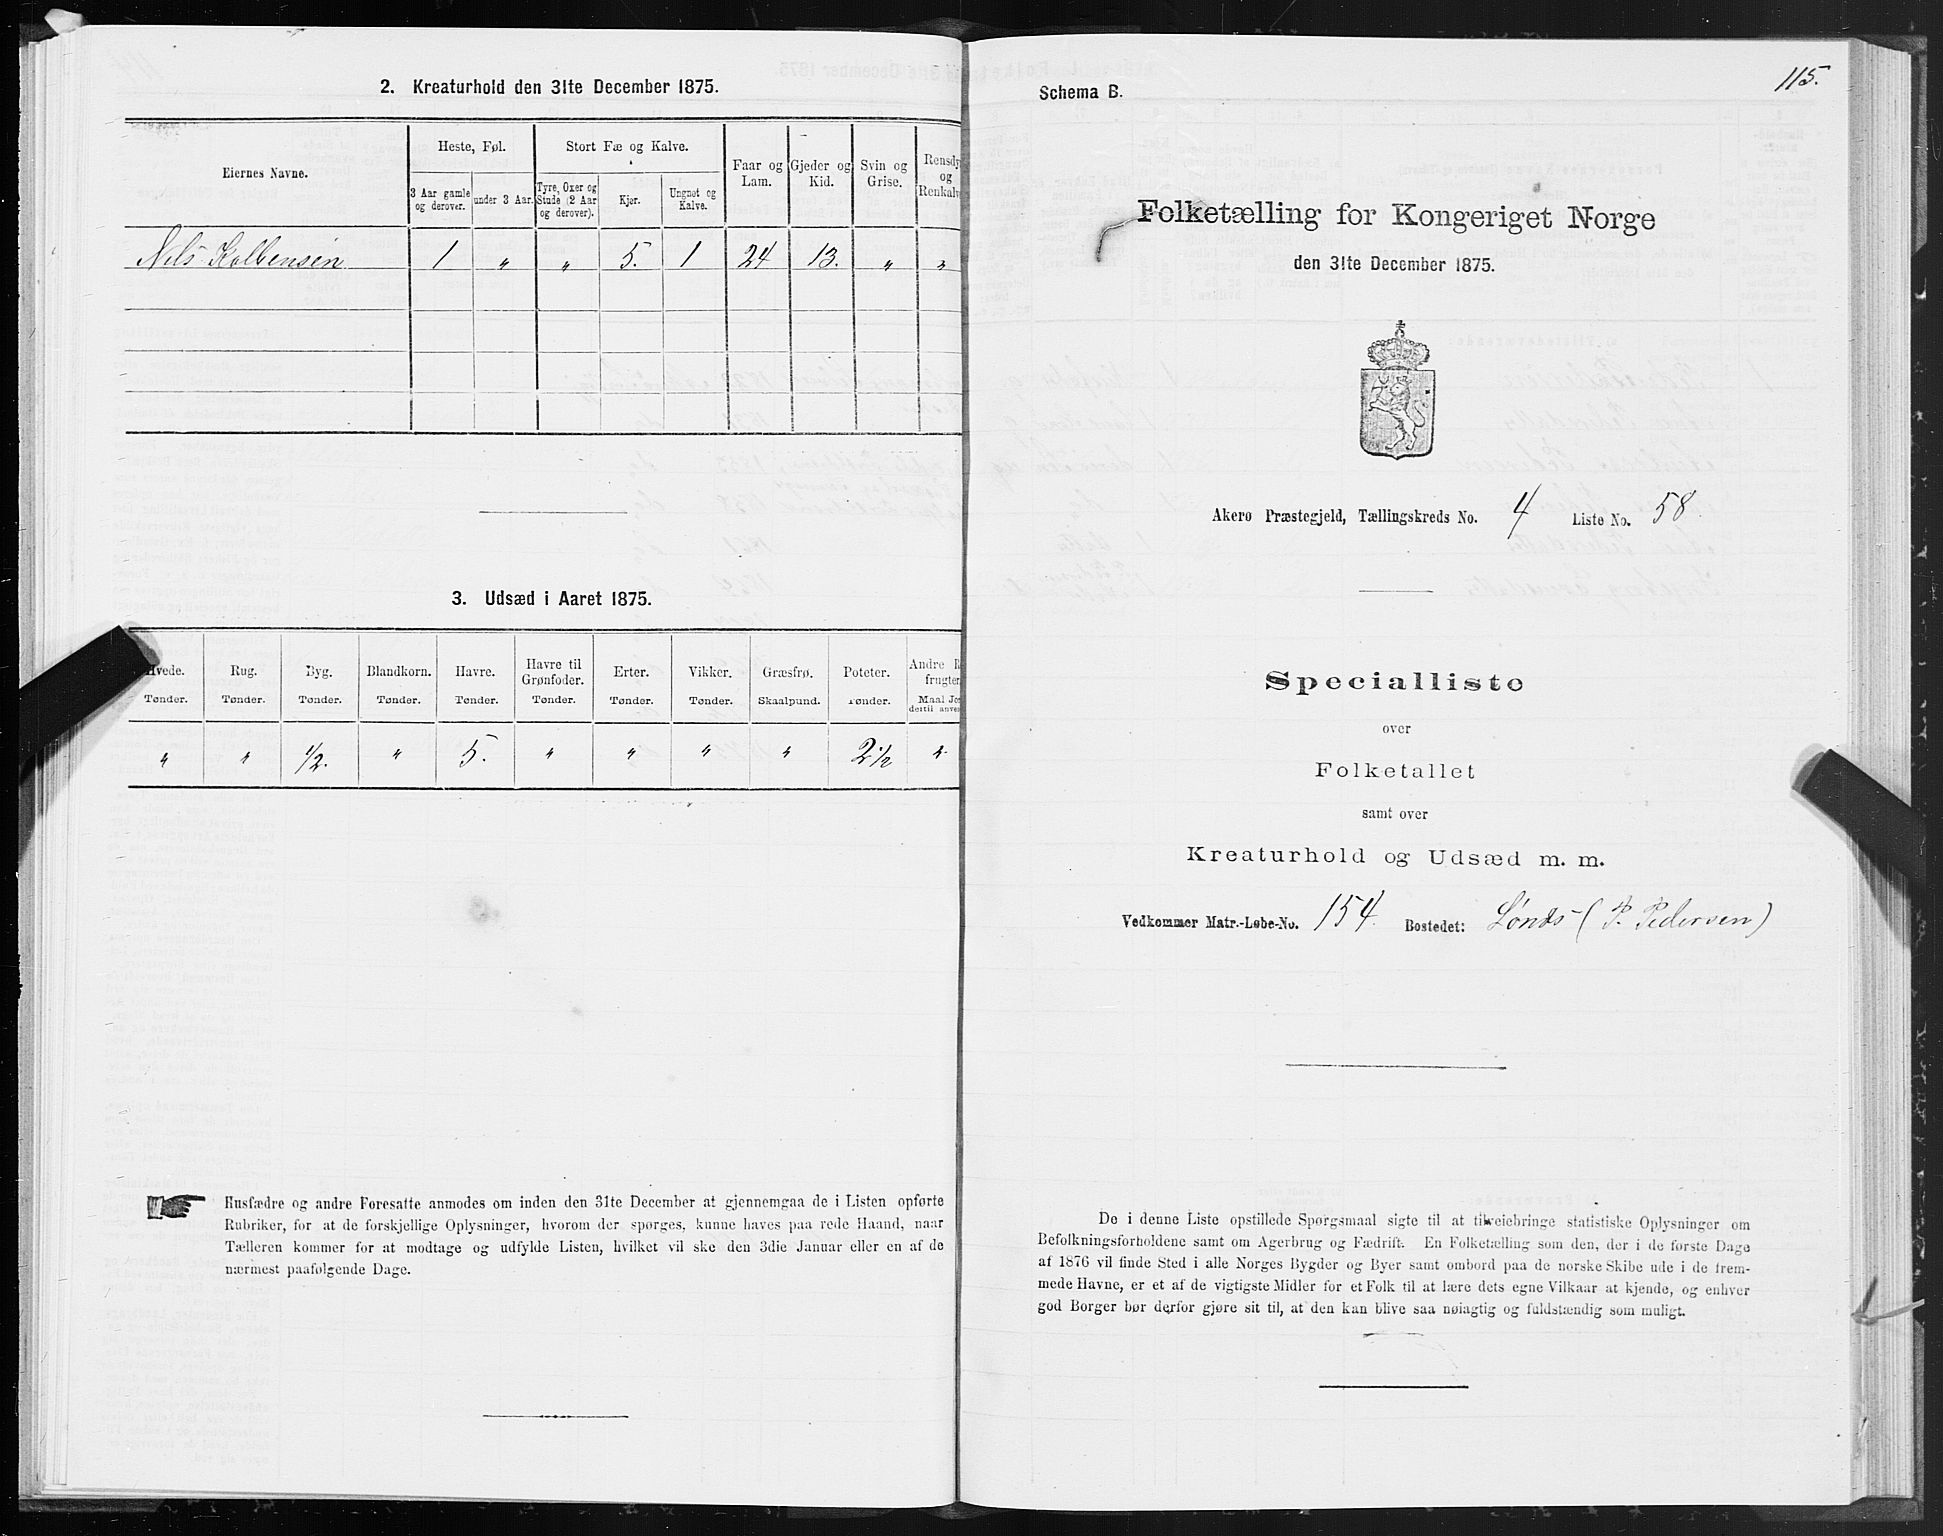 2. Kreaturhold den 31te December 1875.
Eiernes Navne.
Heste, Føl.
Stort Fæ og Kalve.
Faar og Lam.
Gjeder og Kid.
Svin og Grise.
Rensdy og Renkalv
3 Aar gamle og derover.
under 3 Aar.
Tyre, Oxer og Stude (2 Aar og derover).
Kjør.
Ungnøt og Kalve.
Nils Kolbensen 1 " " 5. 1 24 13. " "
3. Udsæd i Aaret 1875.
Hvede. Rug. Byg. Blandkorn. Havre. Havre til Grønfoder. Erter. Vikker. Græsfrø. Poteter. Andre R frugter
Tønder. Tønder. Tønder. Tønder. Tønder. Tønder. Tønder. Tønder. Skaalpund. Tønder. Maal Jo dertil anve
" " 1/2. " 5. " " " " 2 1/2 "
Husfædre og andre Foresatte anmodes om inden den 31te December at gjennemgaa de i Listen opførte
Rubriker, for at de forskjellige Oplysninger, hvorom der spørges, kunne haves paa rede Haand, naar
Tælleren kommer for at modtage og udfylde Listen, hvilket vil ske den 3die Januar eller en af de
nærmest paafølgende Dage.
115.
Schema B.
Folketælling for Kongeriget Norge
den 31te December 1875.
Akerø Præstegjeld, Tællingskreds No. 4 Liste No. 58.
Specialliste
over
Folketallet
samt over
Kreaturhold og Udsæd m. m.
Vedkommer Matr.-Løbe-No. 154. Bostedet: Lønds (P. Pedersen)
De i denne Liste opstillede Spørgsmaal sigte til at tilveiebringe statistiske Oplysninger om
Befolkningsforholdene samt om Agerbrug og Fædrift. En Folketælling som den, der i de første Dage
af 1876 vil finde Sted i alle Norges Bygder og Byer samt ombord paa de norske Skibe ude i de frem-
mede Havne, er et af de vigtigste Midler for et Folk til at lære dets egne Vilkaar at kjende, og enhver
god Borger bør derfor gjøre sit til, at den kan blive saa nøiagtig og fuldstændig som muligt.